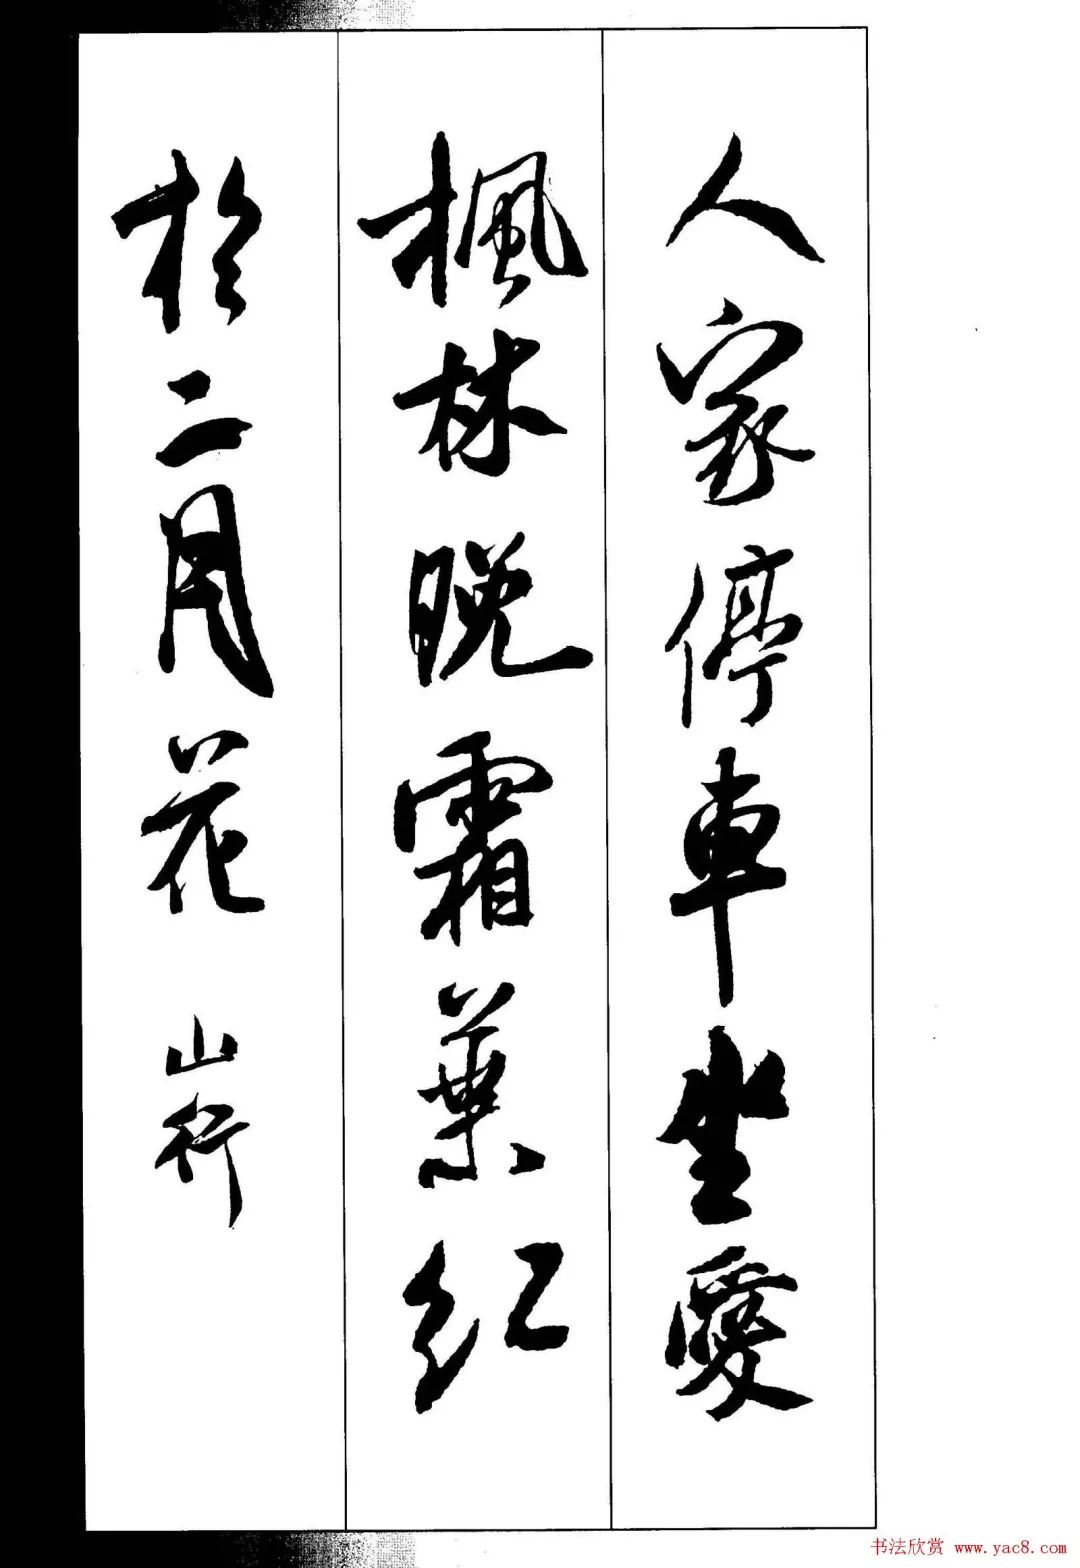 人家停車坐愛
楓林晚霜葉紅
於二月花 山行
书法欣赏 www.yac8.com